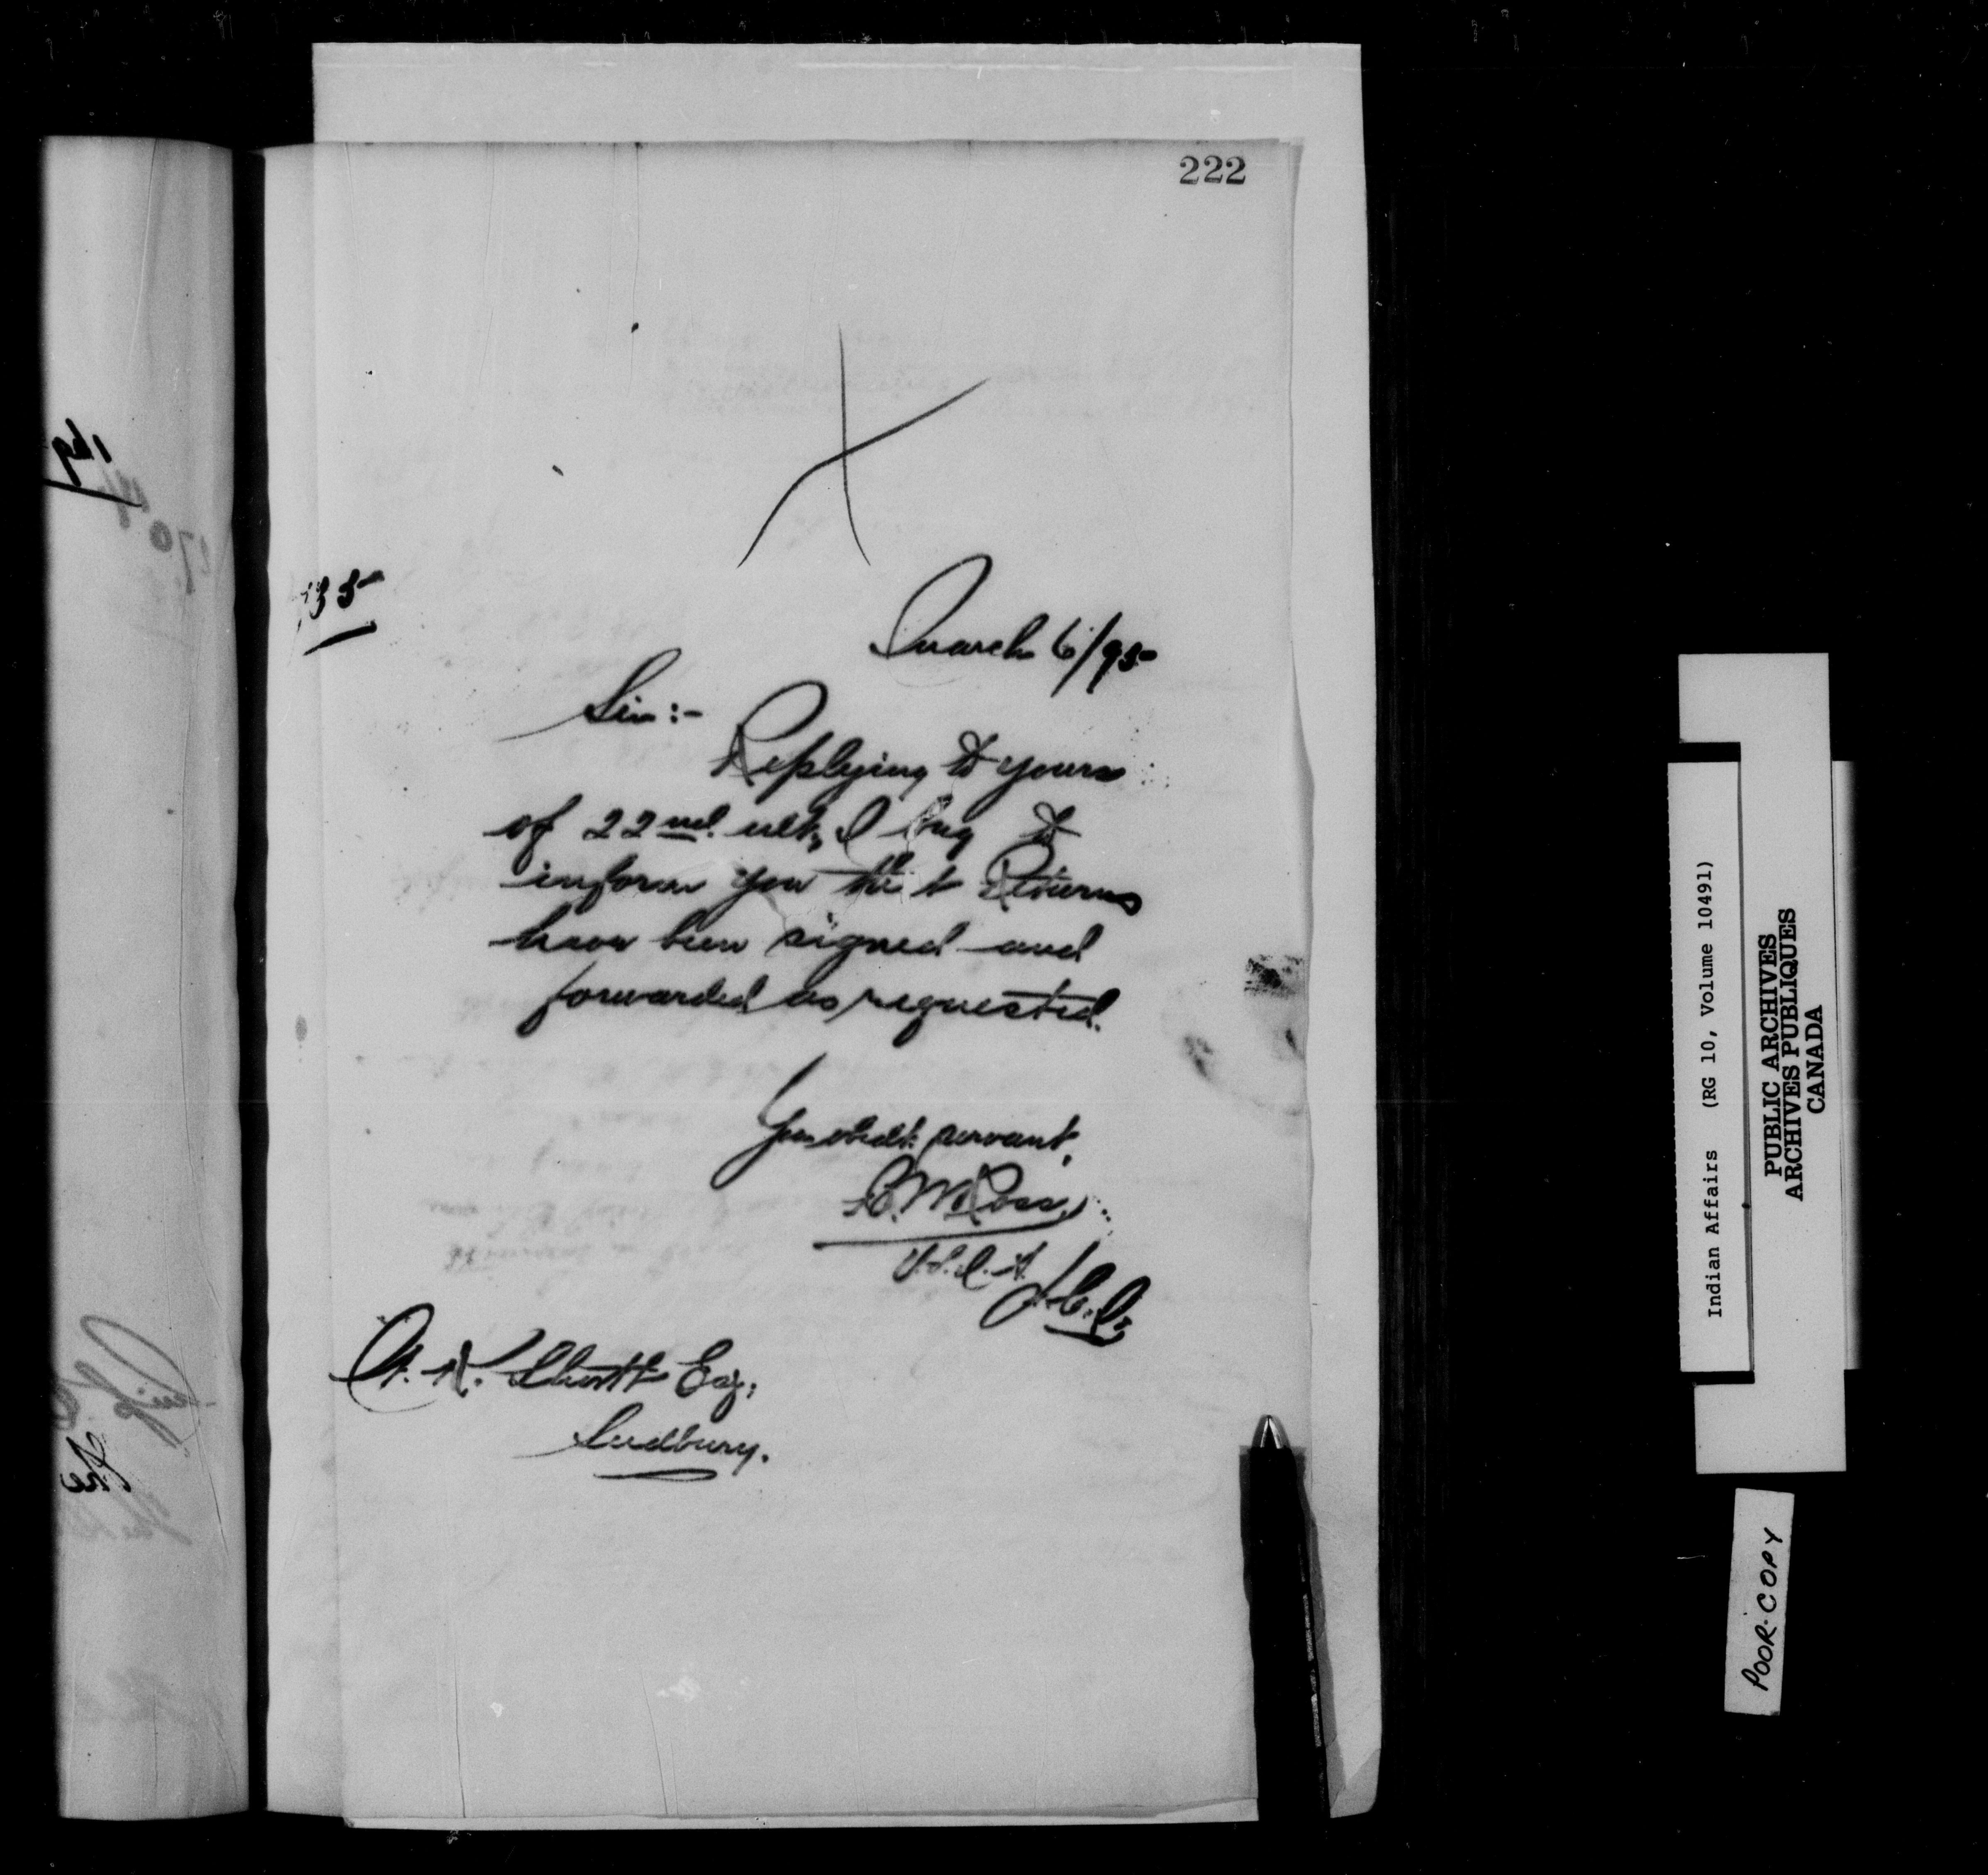 222
135
March 6/95
Sir:-
Replying to yours
of 22nd. ult, I beg to
inform you that Returns
have been signed and
forwarded as requested.
Your obedt. servant,
B. W. Ross,
V.S.I.A.
Esq,
Sudbury.
Indian Affairs (RG 10, Volume 10491)
PUBLIC ARCHIVES
ARCHIVES PUBLIQUES
CANADA
POOR COPY